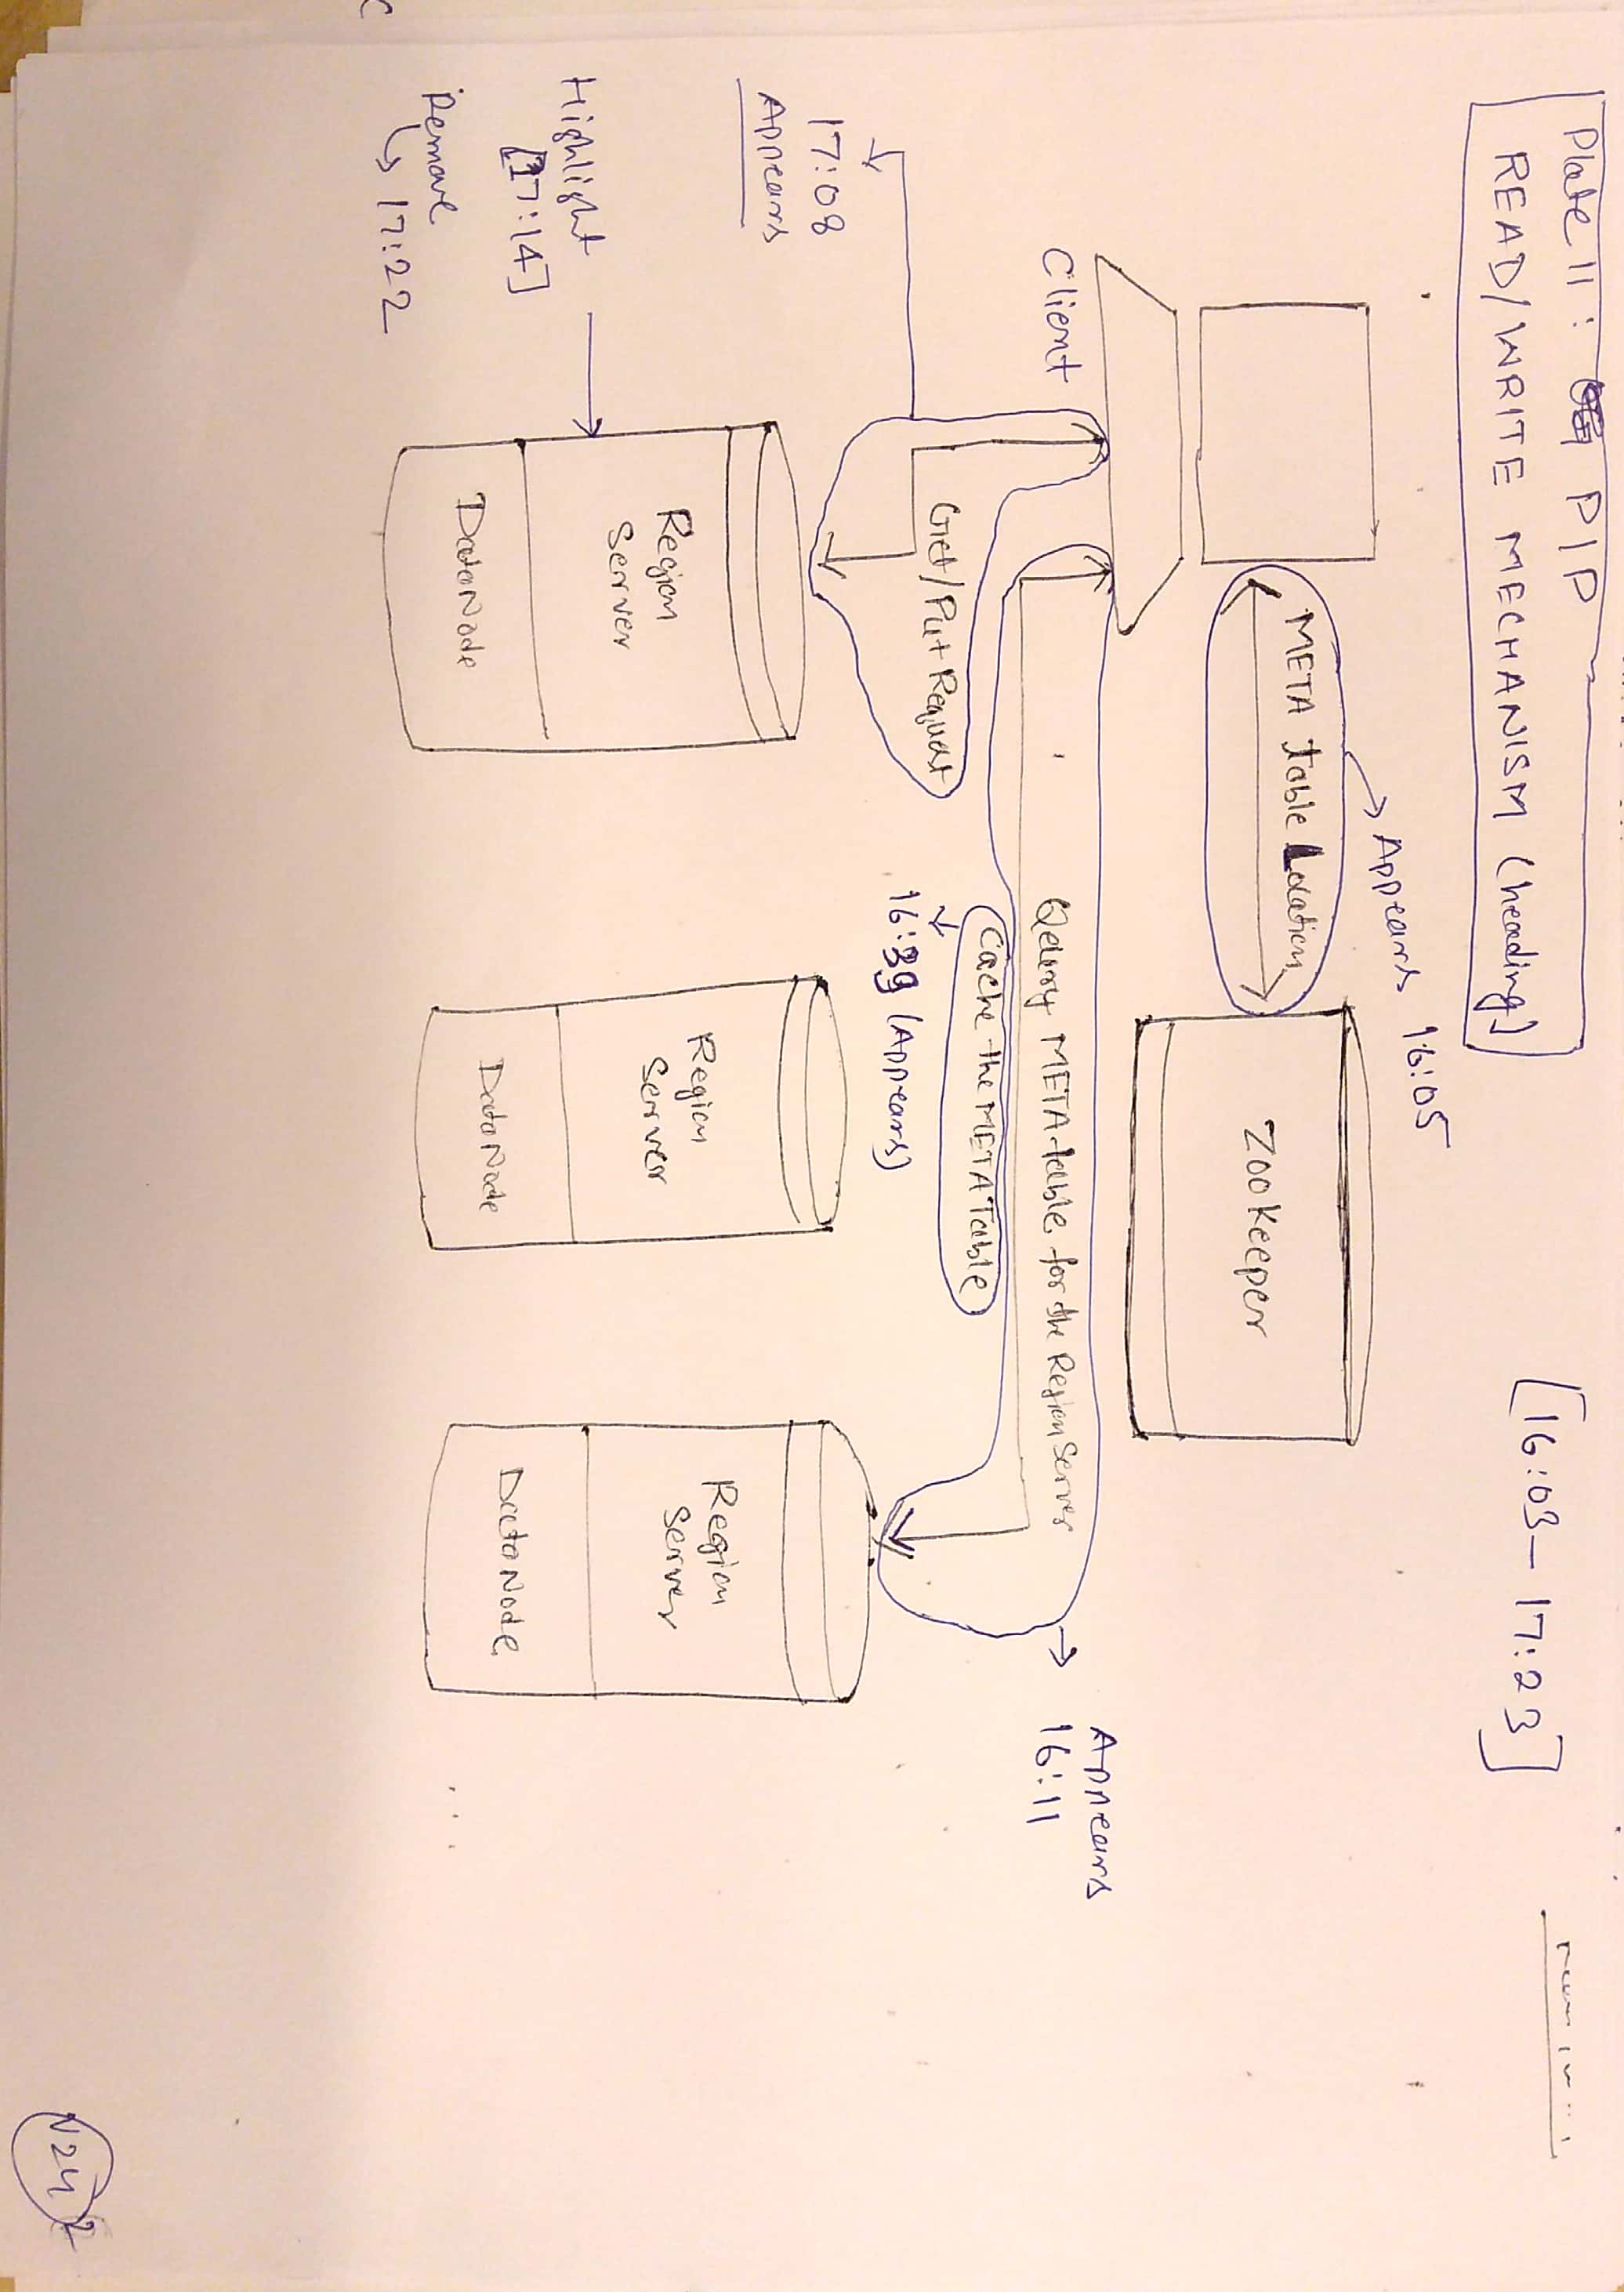 Plate 11 : PIP
READ/WRITE MECHANISM (heading)
[16:03 - 17:23]
Appears 16:05
META Table Location
ZooKeeper
Client
Query META table for the Region Server
Appears
16:11
Cache the META Table
16:39 (Appears)
Get/Put Request
17:08
Appears
Region
Server
DataNode
Region
Server
DataNode
Region
Server
DataNode
Highlight
[17:14]
Remove
17:22
...
V24 2